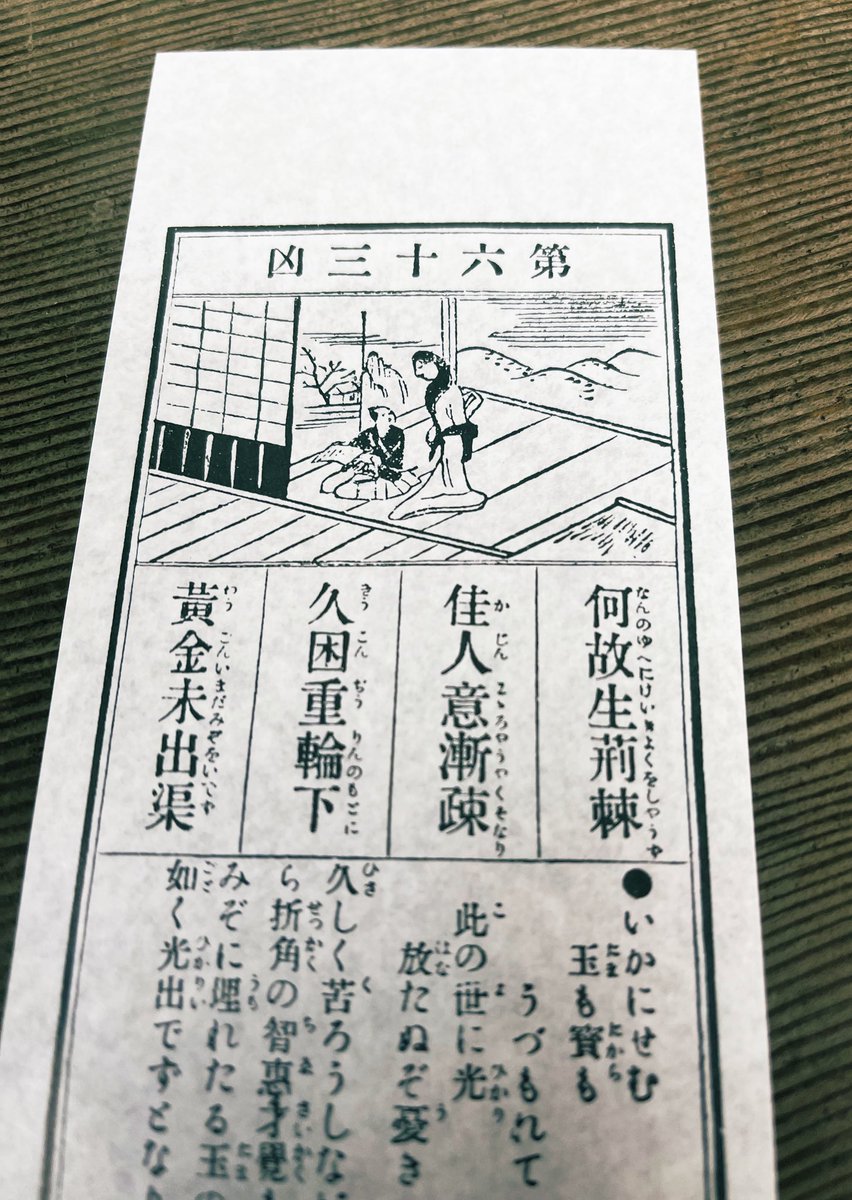 第六十三凶
何故生荊棘
佳人意漸疎
久困重輪下
黃金未出渠
●いかにせむ
玉も寳も
うづもれて
此の世に光
放たぬぞ憂き
久しく苦ろうしな
ら折角の智惠才覺
みぞに埋れたる玉の
如く光出でずとな